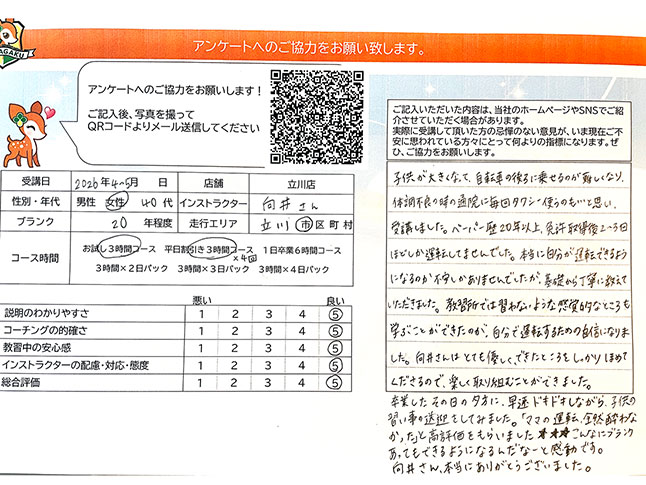 AGAKU
アンケートへのご協力をお願い致します。
アンケートへのご協力をお願いします！
ご記入後、写真を撮って
QRコードよりメール送信してください
受講日 2026年4~5月 日 店舗 立川店
性別・年代 男性 女性 40代 インストラクター 向井さん
ブランク 20年程度 走行エリア 立川市区町村
コース時間 お試し3時間コース 平日割引き3時間コース ×4回 1日卒業6時間コース
3時間×2日パック 3時間×3日パック 3時間×4日パック
悪い 良い
説明のわかりやすさ 1 2 3 4 5
コーチングの的確さ 1 2 3 4 5
教習中の安心感 1 2 3 4 5
インストラクターの配慮・対応・態度 1 2 3 4 5
総合評価 1 2 3 4 5
ご記入いただいた内容は、当社のホームページやSNSでご紹
介させていただく場合があります。
実際に受講して頂いた方の忌憚のない意見が、いま現在ご不
安に思われている方々にとって何よりの指標になります。ぜ
ひ、ご協力をお願いします。
子供が大きくなって、自転車の後ろに乗せるのが難しくなり、
体調不良の時の通院に毎回タクシー使うのもいと思い、
受講しました。ペーパー歴20年以上、免許取得後2~3回
ほどしか運転してませんでした。本当に自分が運転できるよう
になるのか不安しかありませんでしたが、基礎から丁寧に教えて
いただきました。教習所では習わないような感覚的なところも
学ぶことができたのが、自分で運転するための自信になりま
した。向井さんはとても優しく、できたところをしっかりほめて
くださるので、楽しく取り組むことができました。
卒業したその日の夕方に、早速ドキドキしながら、子供の
習い事の送迎をしてみました。「ママの運転、全然酔わな
かった」と高評価をもらいました★★★こんなにブランク
あってもできるようになるんだなーと感動です。
向井さん、本当にありがとうございました。